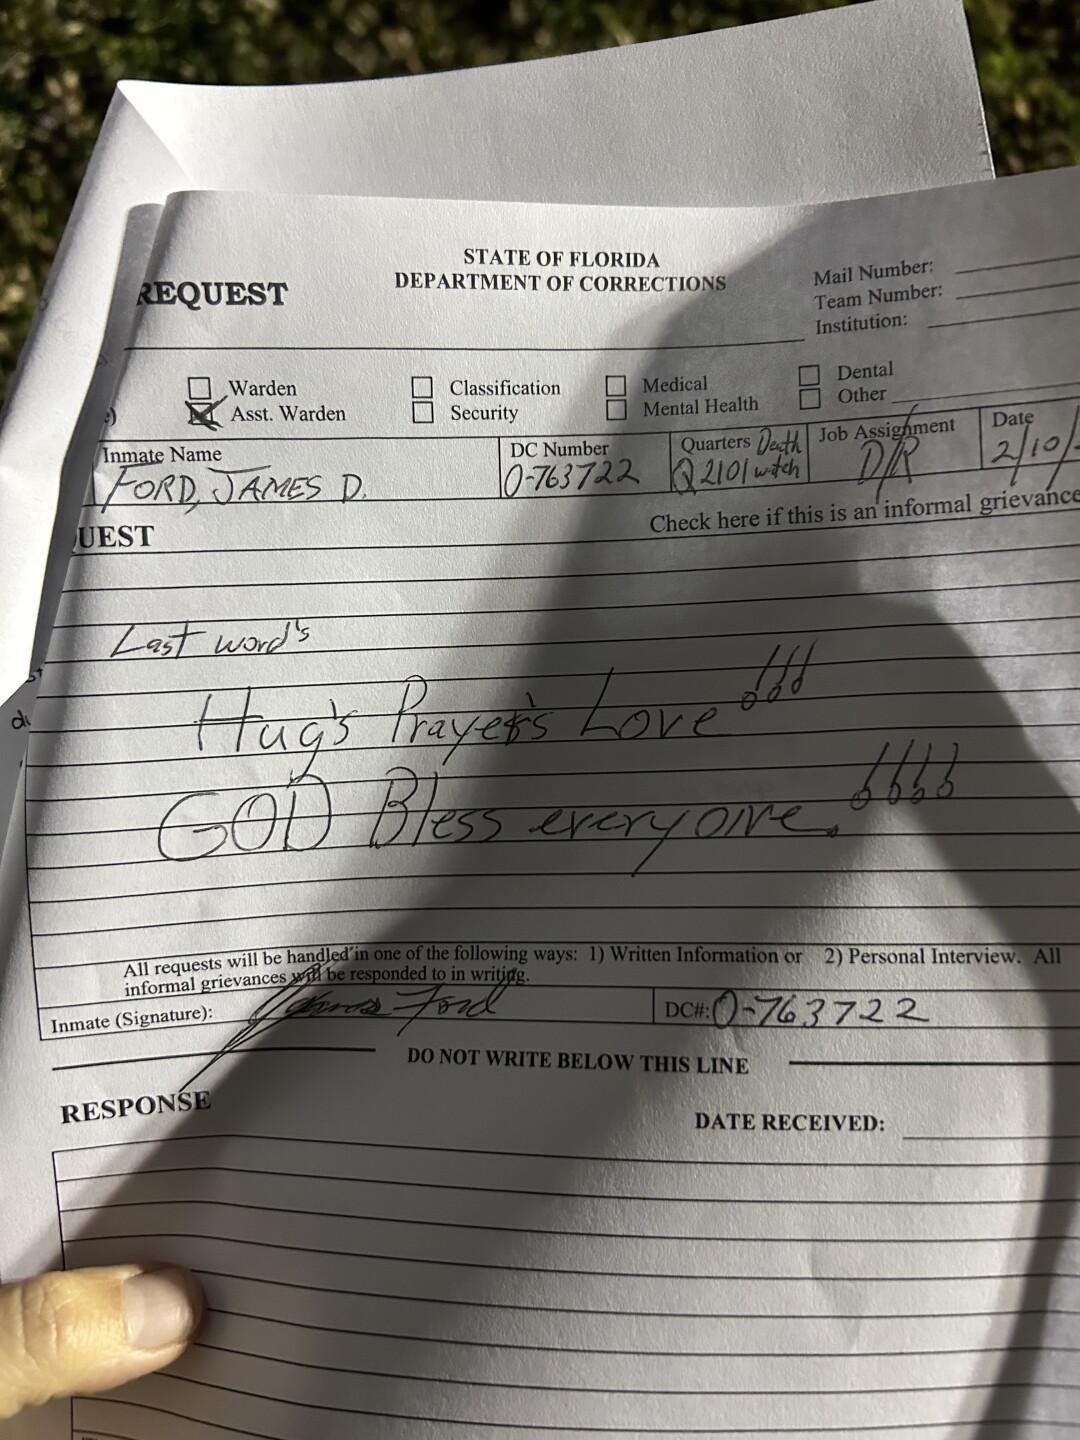 STATE OF FLORIDA
DEPARTMENT OF CORRECTIONS
REQUEST
Mail Number:
Team Number:
Institution:
Warden
Classification
Medical
Dental
Asst. Warden
Security
Mental Health
Other
Inmate Name
FORD, JAMES D.
DC Number
0-763722
Quarters Death
Q2101 watch
Job Assignment
D/R
Date
2/10/
UEST
Check here if this is an informal grievance
Last word's
Hug's Prayer's Love !!!
GOD Bless everyone. !!!!
All requests will be handled in one of the following ways: 1) Written Information or 2) Personal Interview. All
informal grievances will be responded to in writing.
Inmate (Signature): James Ford
DC#: 0-763722
DO NOT WRITE BELOW THIS LINE
RESPONSE
DATE RECEIVED: